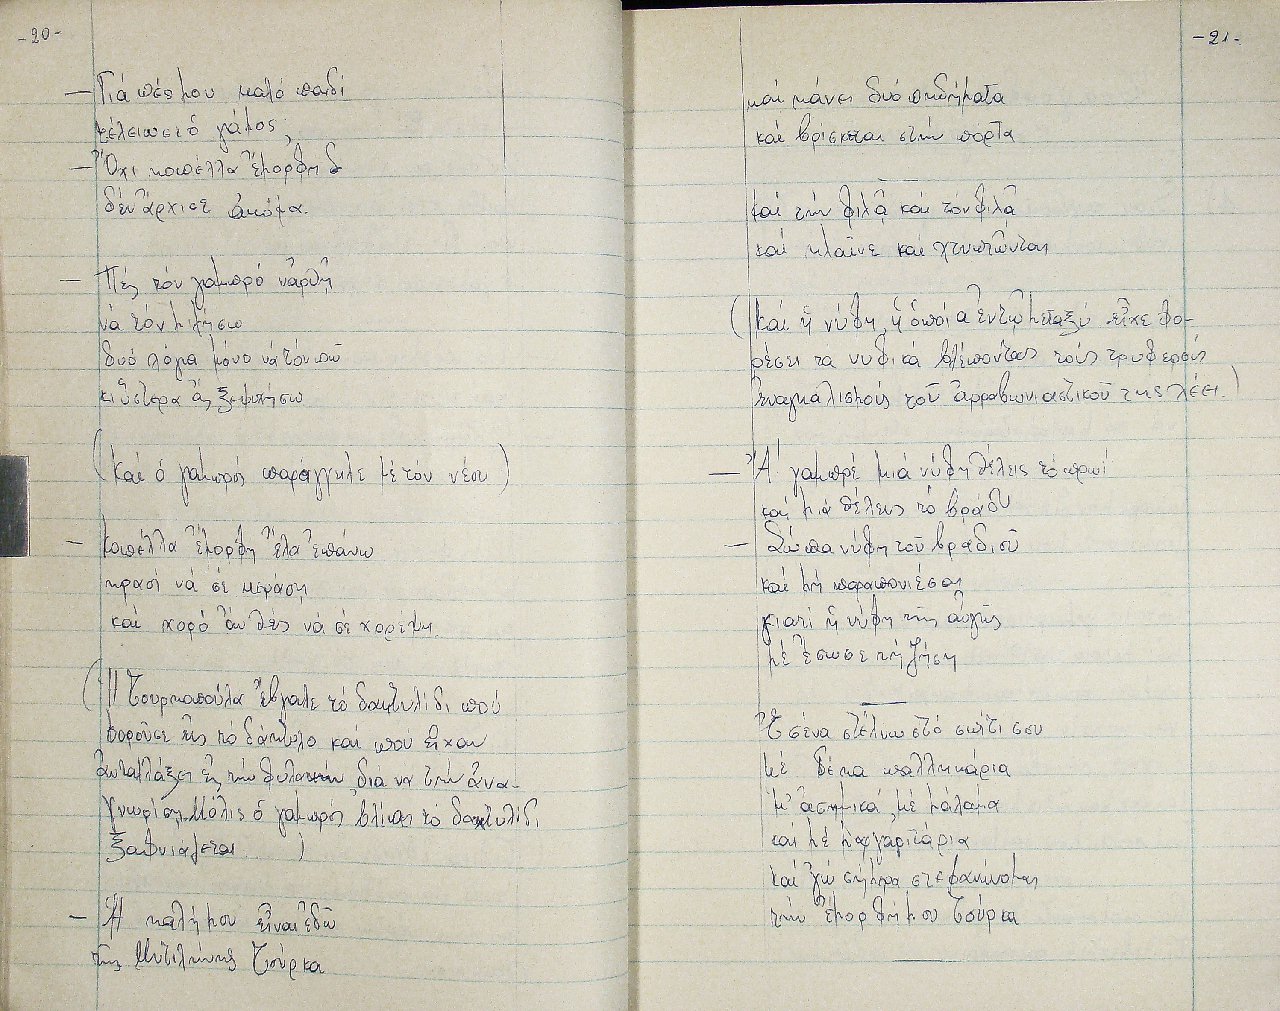 -20-
— Γιά πές μου καλό παιδί
τέλειωσε ὁ γάμος;
— Ὄχι κοπέλλα ἔμορφη
δέν ἄρχισε ἀκόμα.
— Πές τόν γαμπρό νἄρθῃ
νά τόν μιλήσω
δυό λόγια μόνο νά τόν πῶ
κι ὕστερα ἄς ξεψυχήσω
(Καί ὁ γαμπρός παράγγειλε μέ τόν νέον)
— Κοπέλλα ἔμορφη ἔλα ἐπάνω
κρασί νά σέ κεράσῃ
καί χορό ἄν θές νά σέ χορέψῃ.
(Ἡ Τουρκοπούλα ἔβγαλε τό δακτυλίδι πού
φοροῦσε εἰς τό δάκτυλο καί πού εἶχαν
ἀνταλλάξει εἰς τήν φυλακήν διά να τήν ἀνα-
γνωρίσῃ. Μόλις ὁ γαμπρός βλέπει τό δακτυλίδι
ξαφνιάζεται.)
— Ἡ καλή μου εἶναι ἐδῶ
τῆς Μυτιλήνης Τσούρκα
-21-
καί κάνει δυό πηδήματα
καί βρίσκεται στήν πόρτα
Καί τήν φιλᾷ καί τόν φιλᾷ
καί κλαῖνε καί χτυπῶνται
(Καί ἡ νύφη, ἡ ὁποία ἐν τῷ μεταξύ εἶχε φο-
ρέσει τα νυφικά βλέποντας τούς τρυφερούς
ἐναγκαλισμούς τοῦ ἀρραβωνιαστικοῦ της λέει.)
— Ἄ γαμπρέ μιά νύφη θέλεις τό πρωί
καί μιά θέλεις τό βράδυ
— Σώπα νύφη τοῦ βραδιοῦ
καί μή παραπονιέσαι
γιατί ἡ νύφη τῆς αὐγῆς
μέ ἔσωσε τή ζήση
Ἐσένα στέλνω στό σπίτι σου
μέ δέκα παλληκάρια
μ' ἀσημικά, μέ μάλαμα
καί μέ μαργαριτάρια
καί γώ σήμερα στεφανώνομαι
τήν ἔμορφή μου Τσούρκα